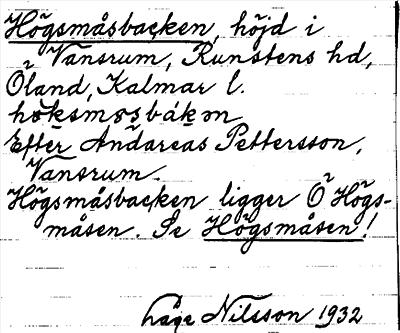 Högsmåsbacken, höjd i
Vansrum, Runstens hd,
Öland, Kalmar l.
höksmosbákm
Efter Andareas Pettersson,
Vansrum.
Högsmåsbacken ligger Ö Högs-
måsen. Se Högsmåsen!
Låge Nilsson 1932